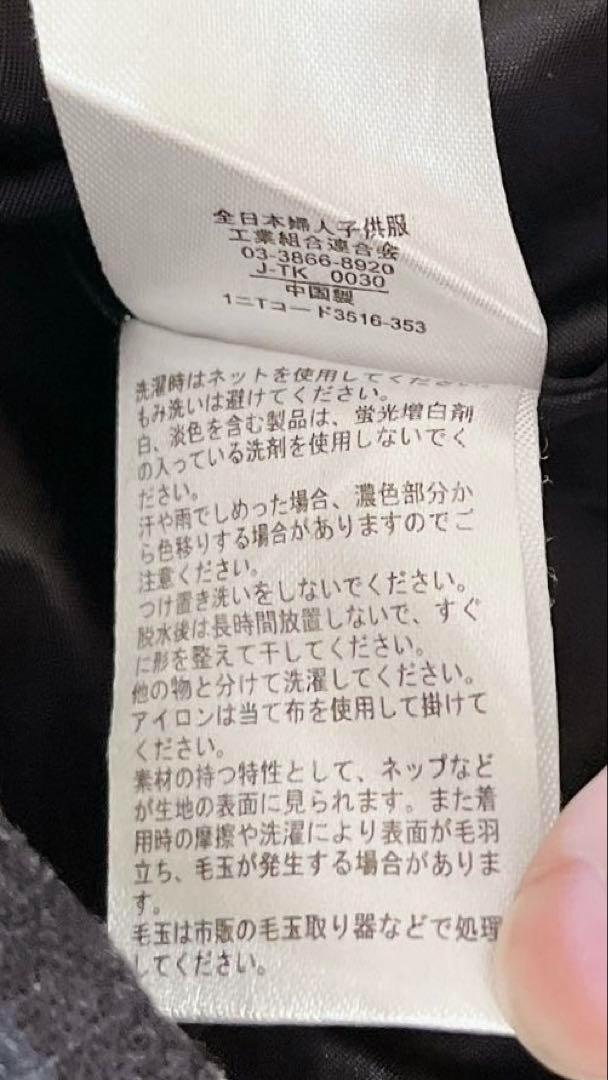 全日本婦人子供服
工業組合連合会
03-3866-8920
J-TK 0030
中国製
1ニTコード3516-353
洗濯時はネットを使用してください。
もみ洗いは避けてください。
白、淡色を含む製品は、蛍光増白剤
の入っている洗剤を使用しないでく
ださい。
汗や雨でしめった場合、濃色部分か
ら色移りする場合がありますのでご
注意ください。
つけ置き洗いをしないでください。
脱水後は長時間放置しないで、すぐ
に形を整えて干してください。
他の物と分けて洗濯してください。
アイロンは当て布を使用して掛けて
ください。
素材の持つ特性として、ネップなど
が生地の表面に見られます。また着
用時の摩擦や洗濯により表面が毛羽
立ち、毛玉が発生する場合がありま
す。
毛玉は市販の毛玉取り器などで処理
してください。